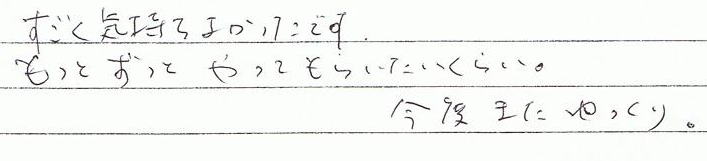 すごく気持ちよかったです.
もっとずっとやってもらいたいくらい。
今後またゆっくり。